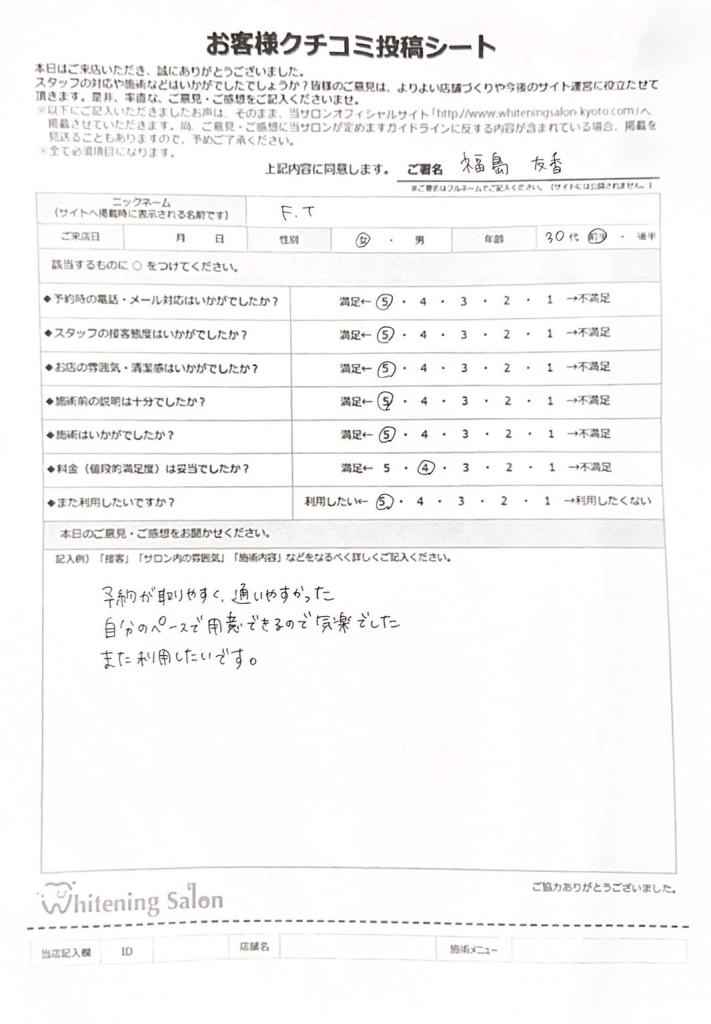 お客様クチコミ投稿シート
本日はご来店いただき、誠にありがとうございました。
スタッフの対応や施術などはいかがでしたでしょうか？皆様のご意見は、よりよい店舗づくりや今後のサイト運営に役立たせて
頂きます。是非、率直な、ご意見・ご感想をご記入くださいませ。
※以下にご記入いただきましたお声は、そのまま、当サロンオフィシャルサイト「http://www.whiteningsalon-kyoto.com」へ
掲載させていただきます。尚、ご意見・ご感想に当サロンが定めますガイドラインに反する内容が含まれている場合、掲載を
見送ることもありますので、予めご了承ください。
※全て必須項目になります。
上記内容に同意します。 ご署名 福島 友香
※ご署名はフルネームでご記入ください。（サイトには公開されません。）
ニックネーム
（サイトへ掲載時に表示される名前です） F.T
ご来店日 月 日 性別 女 ・ 男 年齢 30代 前半 ・ 後半
該当するものに ○ をつけてください。
◆予約時の電話・メール対応はいかがでしたか？ 満足← 5 ・ 4 ・ 3 ・ 2 ・ 1 →不満足
◆スタッフの接客態度はいかがでしたか？ 満足← 5 ・ 4 ・ 3 ・ 2 ・ 1 →不満足
◆お店の雰囲気・清潔感はいかがでしたか？ 満足← 5 ・ 4 ・ 3 ・ 2 ・ 1 →不満足
◆施術前の説明は十分でしたか？ 満足← 5 ・ 4 ・ 3 ・ 2 ・ 1 →不満足
◆施術はいかがでしたか？ 満足← 5 ・ 4 ・ 3 ・ 2 ・ 1 →不満足
◆料金（値段的満足度）は妥当でしたか？ 満足← 5 ・ 4 ・ 3 ・ 2 ・ 1 →不満足
◆また利用したいですか？ 利用したい← 5 ・ 4 ・ 3 ・ 2 ・ 1 →利用したくない
本日のご意見・ご感想をお聞かせください。
記入例）「接客」「サロン内の雰囲気」「施術内容」などをなるべく詳しくご記入ください。
予約が取りやすく、通いやすかった
自分のペースで用意できるので気楽でした
また利用したいです。
Whitening Salon
ご協力ありがとうございました。
当店記入欄 ID 店舗名 施術メニュー